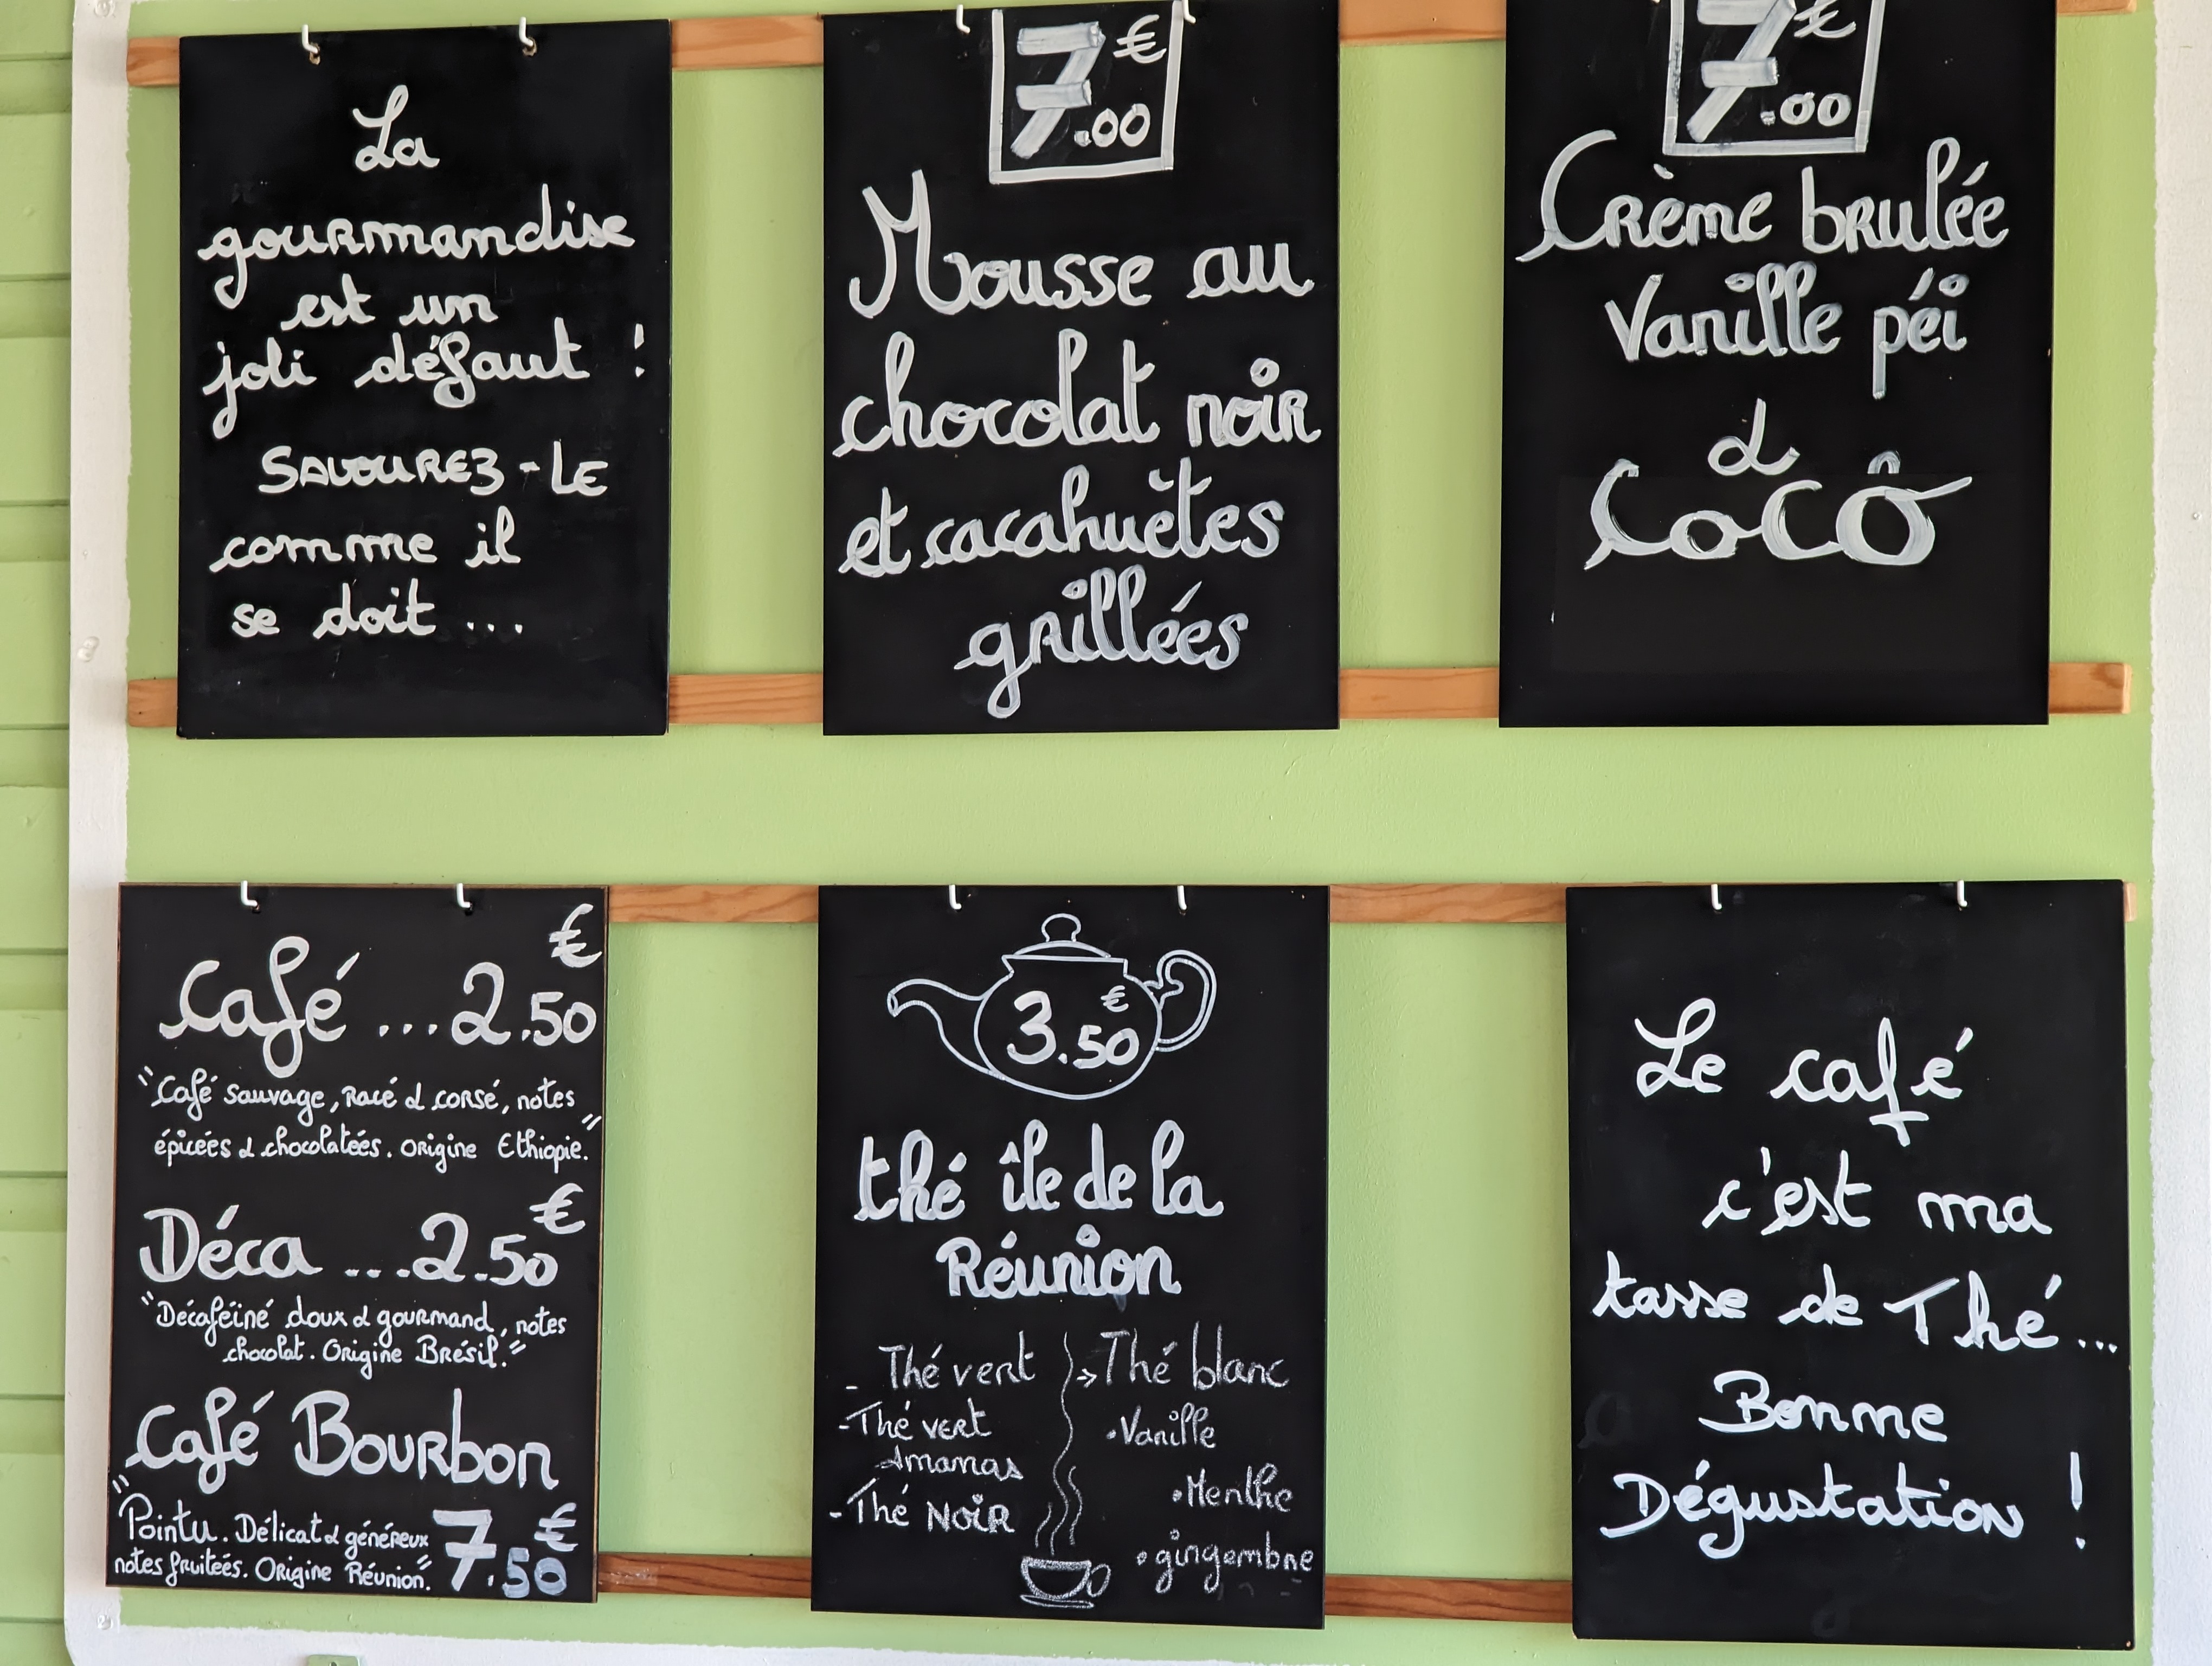 La
gourmandise
est un
joli défaut !
SAVOUREZ-LE
comme il
se doit ...
7€.00
Mousse au
chocolat noir
et cacahuètes
grillées
7€.00
Crème brulée
Vanille péi
&
Cocô
Café ...2€.50
"Café sauvage, Racé & corsé, notes
épicées & chocolatées. Origine Ethiopie."
Déca ...2.50€
"Décaféiné doux & gourmand, notes
chocolat. Origine Brésil."
Café Bourbon
"Pointu. Délicat & généreux
notes fruitées. Origine Réunion."
7€.50
3€.50
thé île de la
Réunion
- Thé vert
- Thé vert
Ananas
- Thé NOIR
> Thé blanc
• Vanille
• Menthe
• gingembre
Le café
c'est ma
tasse de Thé...
Bonne
Dégustation !